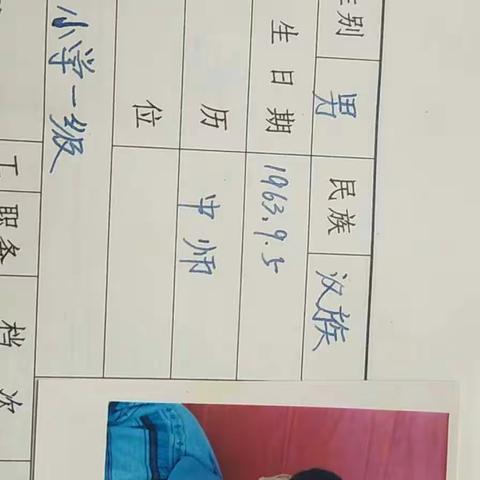 性别 男 民族 汉族
生日期 1963.9.5
历 中师
位
小学一级
工 职务 档次